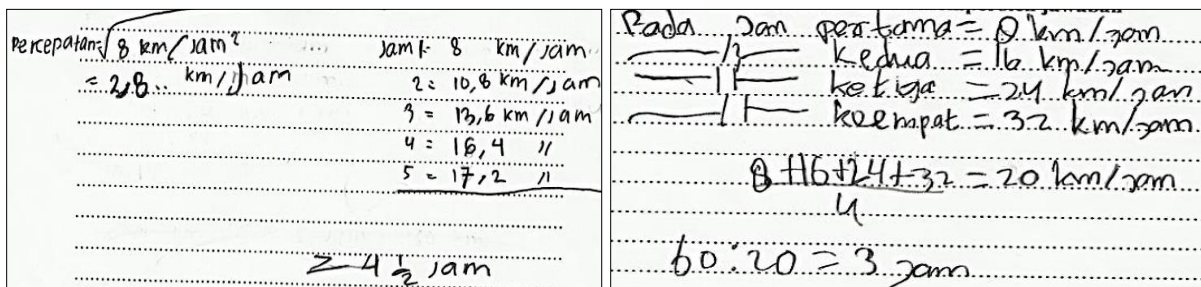 Percepatan = √8 km/jam²
= 2,8.. km/jam
Jam 1 = 8 km/jam
2 = 10,8 km/jam
3 = 13,6 km/jam
4 = 16,4 "
5 = 17,2 "
= 4 1/2 jam
Pada Jam pertama = 8 km/jam
—"— kedua = 16 km/jam
—"— ketiga = 24 km/jam
—"— keempat = 32 km/jam
8+16+24+32 = 20 km/jam
4
60:20 = 3 jam